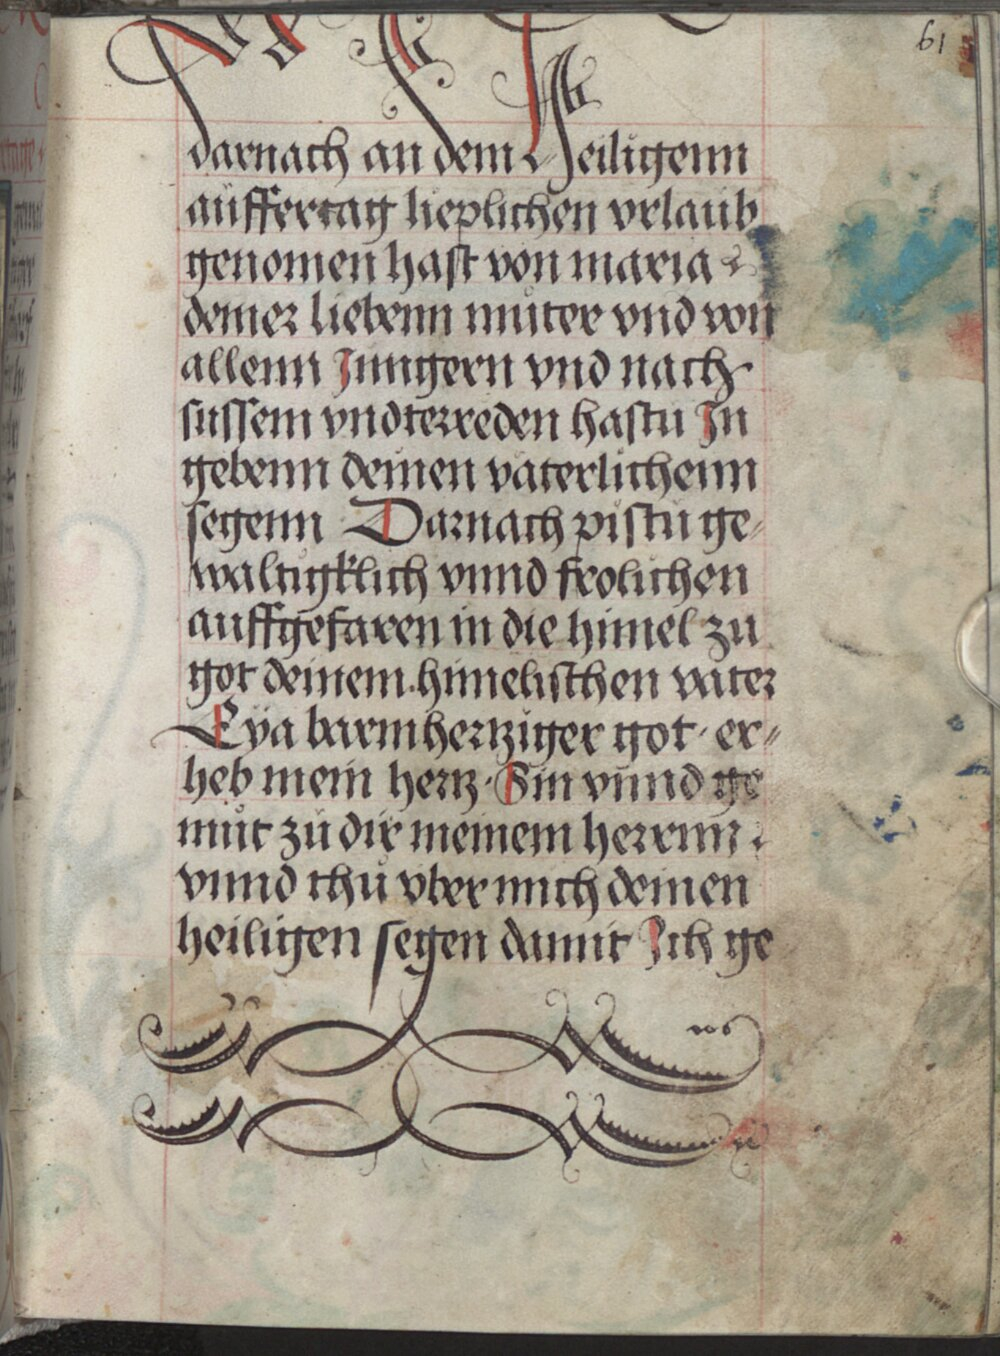 61
darnach an dem Heiligenn
auffertag lieplichen vrlaub
genomen hast von maria
deiner liebenn muter vnd von
allenn Jungern vnd nach
sussem vndterreden hastu In
gebenn deinen vaterlichenn
segenn Darnach pistu ge-
waltigklich vnnd frolichen
auffgefaren in die himel zu
got deinem himelischen vater
Eya barmhertziger got · er-
heb mein hertz · Sin vnnd ge
müt zu dir meinem herrnn
vnnd thu vber mich deinen
heiligen segen damit Ich ge